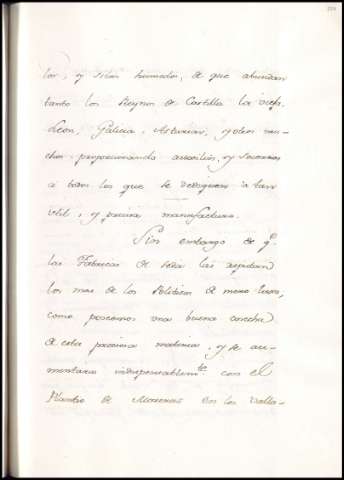 los, y sitios humedos, de que abundan
tanto los Reynos de Castilla la vieja,
Leon, Galicia, Asturias, y otros mu-
chos: proporcionando auxilios, y socorros
a todos los que se dediquen a tan
util, y precisa manufactura.
Sin embargo de q.e
las Fabricas de seda las reputan
los mas de los Politicos de mero luxo,
como poseemos una buena cosecha
de esta preciosa materia, y se au-
mentaria indispensablem.te con el
Plantio de Moreras en los Valla-